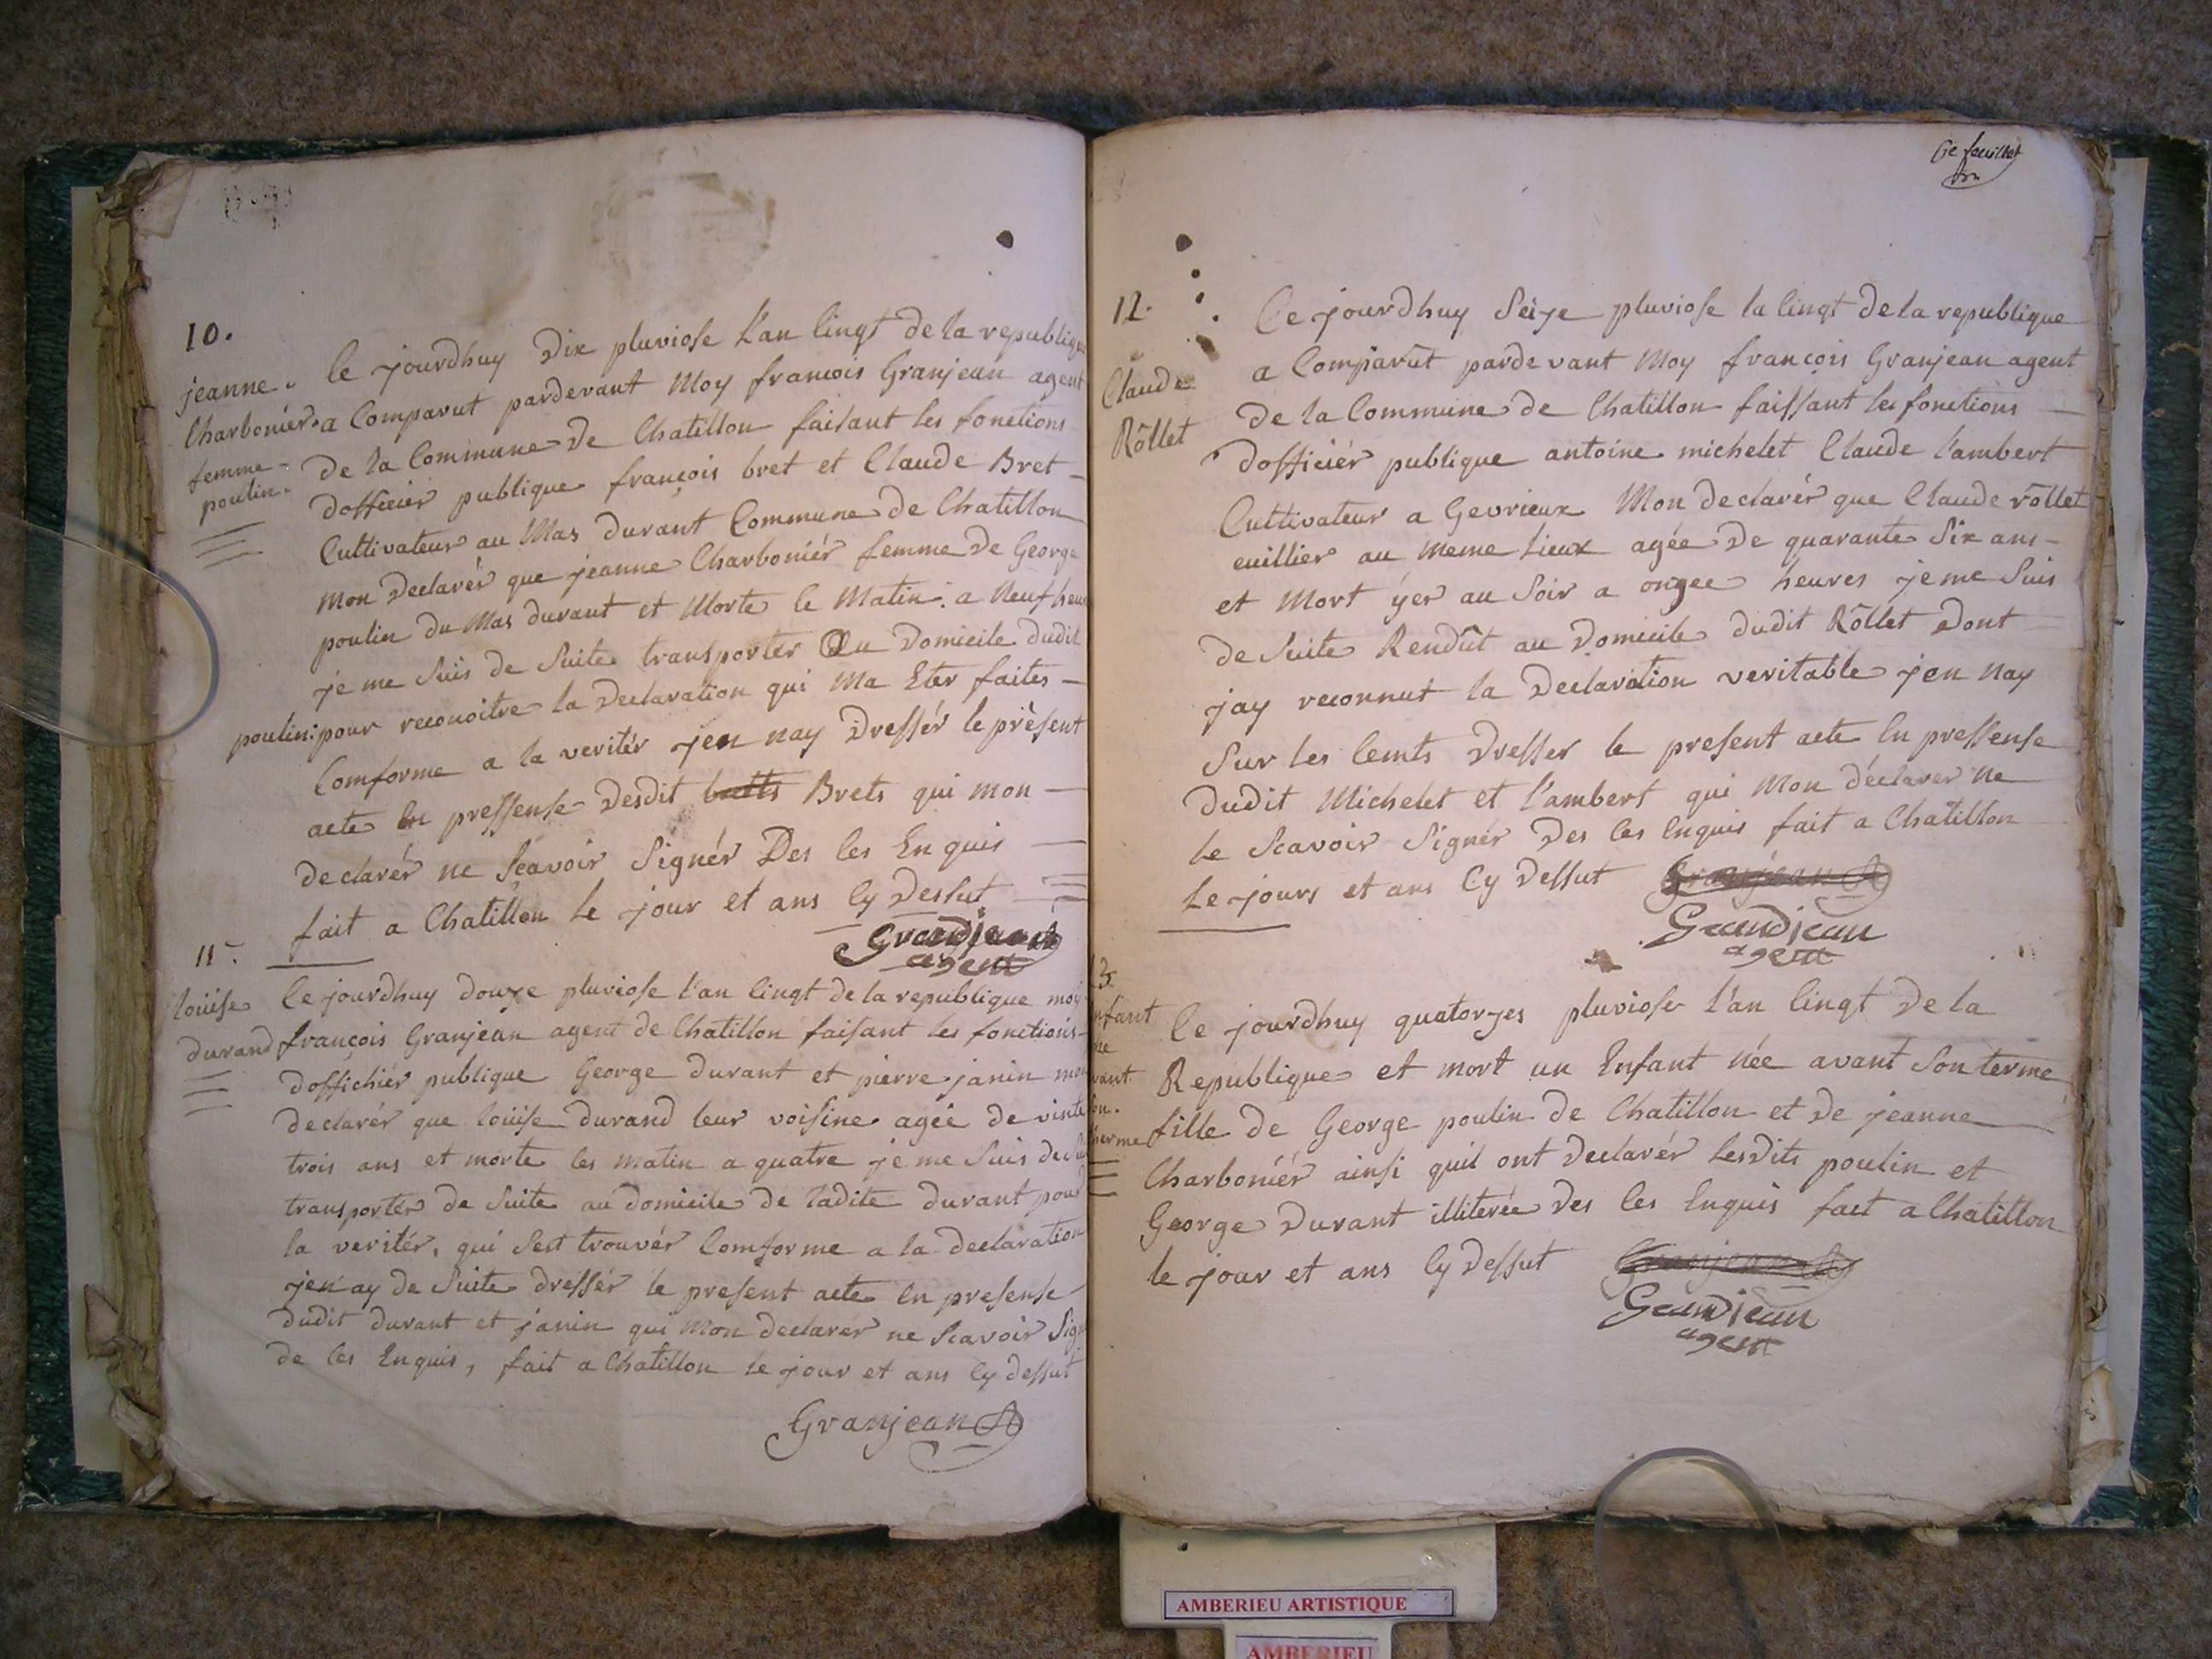 10.
jeanne.
Charboniér.
femme
poulin.
Ce jourdhuy Dix pluviose L'an Cinqt de la republique
a Comparut pardevant Moy francois Granjean agent
de la Commune de Chatillon faisant les fonctions
dofficier publique françois bret et Claude Bret
Cultivateur au Mas Durant Commune de Chatillon
mon Declarér que jeanne Charboniér femme De George
poulin du Mas durant et Morte Ce Matin a Neuf heur
je me Suis de Suite transporter Au Domicile dudit
poulin: pour reconoitre la Declaration qui Ma Eter faites
Comforme a la veritér jen nay Dressér le présent
acte En pressense Desdit Brets qui mon
declarér ne Sçavoir Signér Des Ces Enquis
fait a Chatillon Le jour et ans Cy Dessut
Grandjean
agent
11.
louise
durand
Ce jourdhuy douze pluviose l'an Cinqt de la republique moy
françois Granjean agent de Chatillon faisant les fonctions
doffichiér publique George durant et pierre janin mon
declarér que louise durand leur voisine agée de vinte
trois ans et morte Ces matin a quatre je me Suis de
transporter de Suite au domicile de ladite durant pour
la veritér, qui Sest trouvér Comforme a la declaration
jen ay de Suite dressér le present acte En presense
dudit durant et janin qui mon declarér ne Scavoir Sign
de Ces Enquis, fait a Chatillon Le jour et ans Cy dessut
Granjean A
6e feuillet
12.
Claude
Rôllet
Ce jourdhuy Seize pluviose la Cinqt de la republique
a Comparût parde vant Moy françois Granjean agent
de la Commune de Chatillon faissant les fonctions
dofficiér publique antoine michelet Claude Lambert
Cultivateur a Gevrieux Mon declarér que Claude rôllet
euillier au meme Lieux agée De quarante Six ans
et Mort ÿer au Soir a onzee heures je me Suis
de Suite Rendût au Domicile dudit Rôllet Dont
jay reconnut la Declaration veritable jen nay
Sur les Cemts Dresser le present acte En pressense
dudit Michelet et Lambert qui Mon déclarer ne
Le Scavoir Signér Des Ces Enquis fait a Chatillon
Le jours et ans Cy Dessut Granjean A
Grandjean
agent
13.
nfant
ne
vant.
on.
herme
Ce jourdhuy quatorzes pluviose l'an Cinqt de la
Republique et mort un Enfant née avant Son terme
fille de George poulin de Chatillon et de jeanne
Charboniér ainsi quil ont Declarér Lesdits poulin et
George Durant illiterée des Ces Enquis fait a Chatillon
le jour et ans Cy dessut Granjean A
Grandjean
agent
AMBERIEU ARTISTIQUE
AMBERIEU